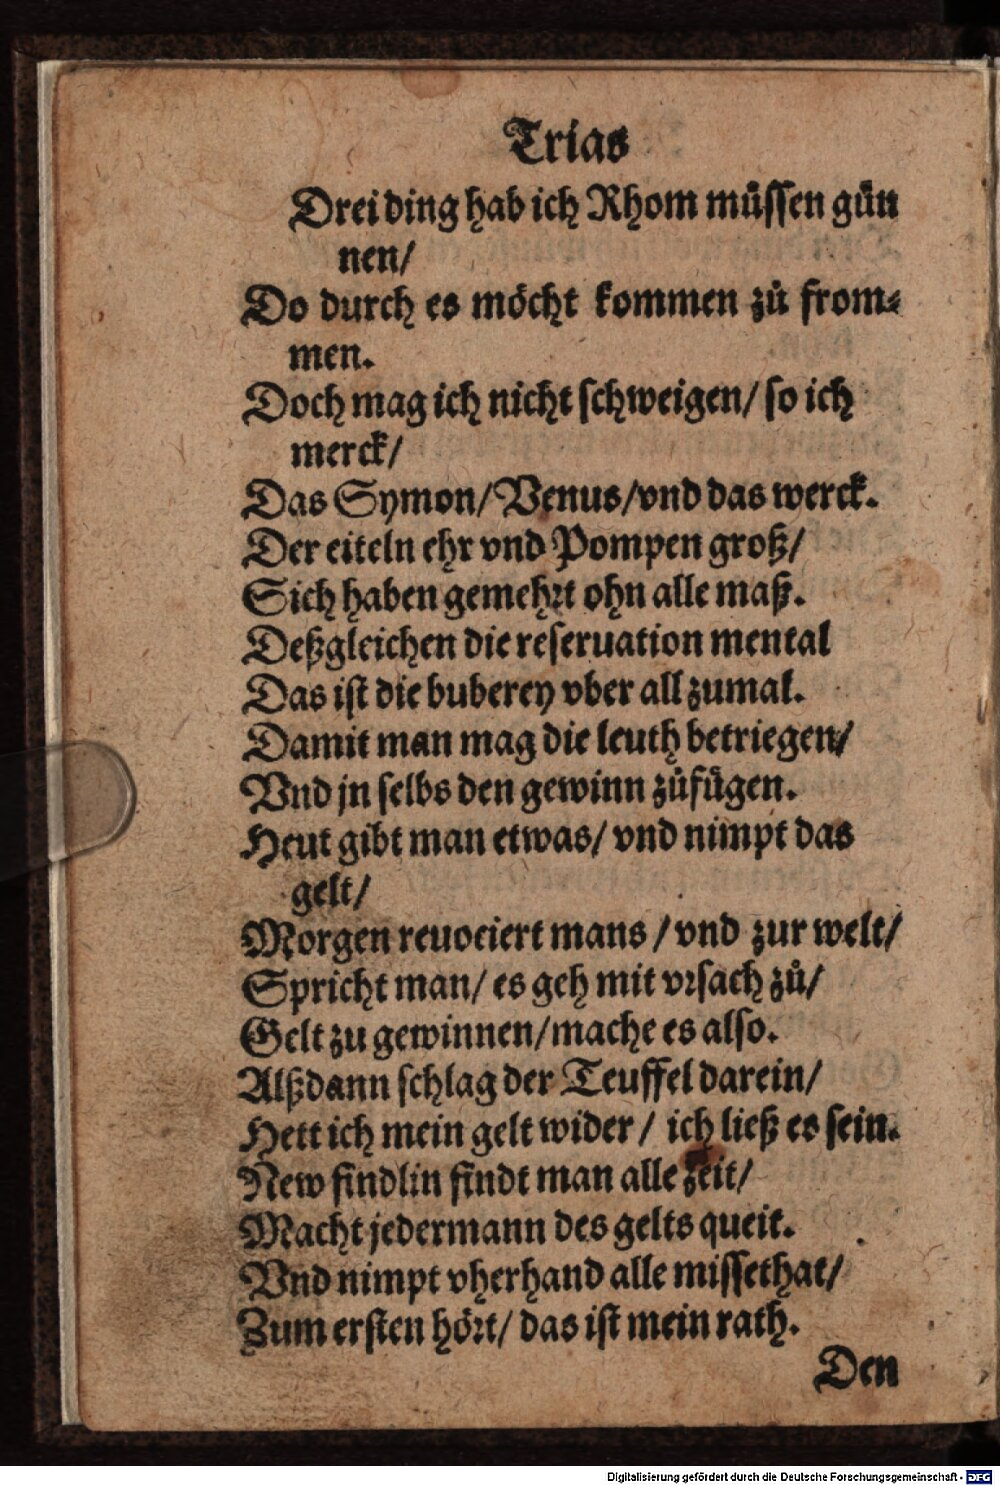 Trias
Drei ding hab ich Rhom müssen gün
nen/
Do durch es möcht kommen zů from⸗
men.
Doch mag ich nicht schweigen/ so ich
merck/
Das Symon/ Venus/ vnd das werck.
Der eiteln ehr vnd Pompen groß/
Sich haben gemehrt ohn alle maß.
Deßgleichen die reseruation mental
Das ist die buberey vber all zumal.
Damit man mag die leuth betriegen/
Vnd jn selbs den gewinn zůfügen.
Heut gibt man etwas/ vnd nimpt das
gelt/
Morgen reuociert mans / vnd zur welt/
Spricht man/ es geh mit vrsach zů/
Gelt zu gewinnen/ mache es also.
Alßdann schlag der Teuffel darein/
Hett ich mein gelt wider / ich ließ es sein.
New findlin findt man alle zeit/
Macht jedermann des gelts queit.
Vnd nimpt vherhand alle missethat/
Zum ersten hört/ das ist mein rath.
Den
Digitalisierung gefördert durch die Deutsche Forschungsgemeinschaft - DFG